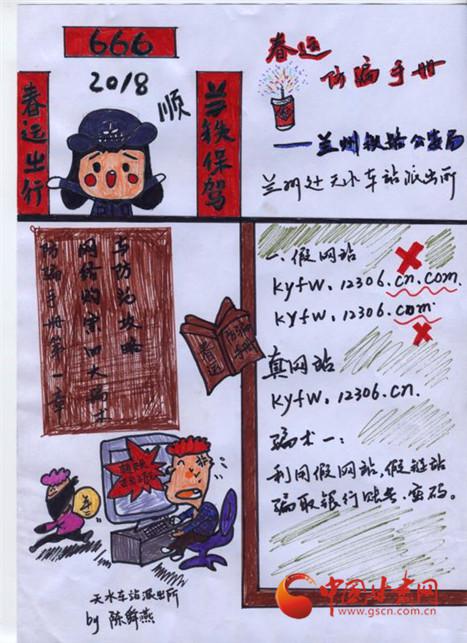 666
2018
顺
春运出行
兰铁保驾
春运
防骗手册
——兰州铁路公安局
兰州处天水车站派出所
防骗手册第一章
网络购票四大骗术
与防范攻略
春运
防骗手册
一、假网站
kyfw.12306.cn.com.
kyfw.12306.com.
真网站
kyfw.12306.cn.
骗术一:
利用假网站,假链站
骗取银行账号、密码。
天水车站派出所
by 陈舜燕
中国甘肃网
www.gscn.com.cn